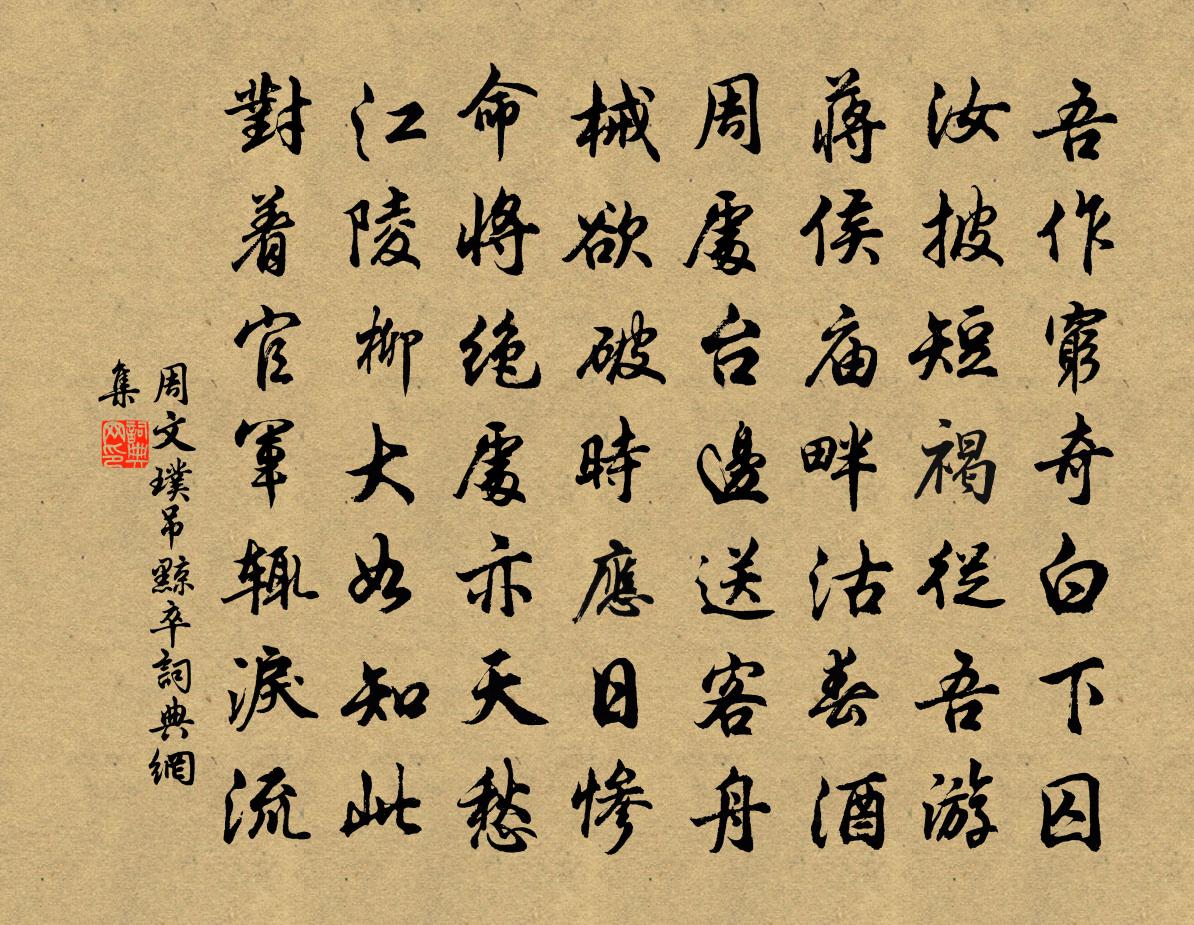 吾作窮奇白下囚
汝披短褐從吾游
蔣侯庙畔沽春酒
周處台邊送客舟
械欲破時應日慘
命將绝處亦天愁
江陵柳大如知此
對着官軍辄淚流
周文璞吊黥卒詞典網
集
詞典网印